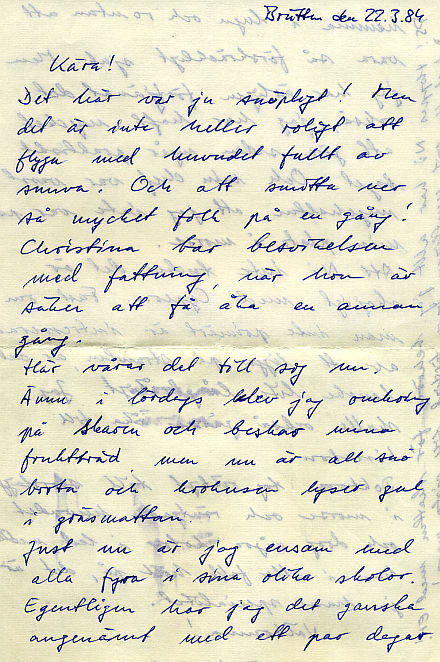 Brütten den 22.3.84
Kära!
Det här var ju snöpligt! Men
det är inte heller roligt att
flyga med huvudet fullt av
snuva. Och att smitta ner
så mycket folk på en gång!
Christina bar besvikelsen
med fattning, när hon är
säker att få åka en annan
gång.
Här vårar det till sig nu.
Ännu i lördags blev jag omkring
på skaren och beskar mina
fruktträd, men nu är all snö
borta och krokusen lyser gul
i gräsmattan.
Just nu är jag ensam med
alla fyra i sina olika skolor.
Egentligen har jag det ganska
angenämt med ett par dagar